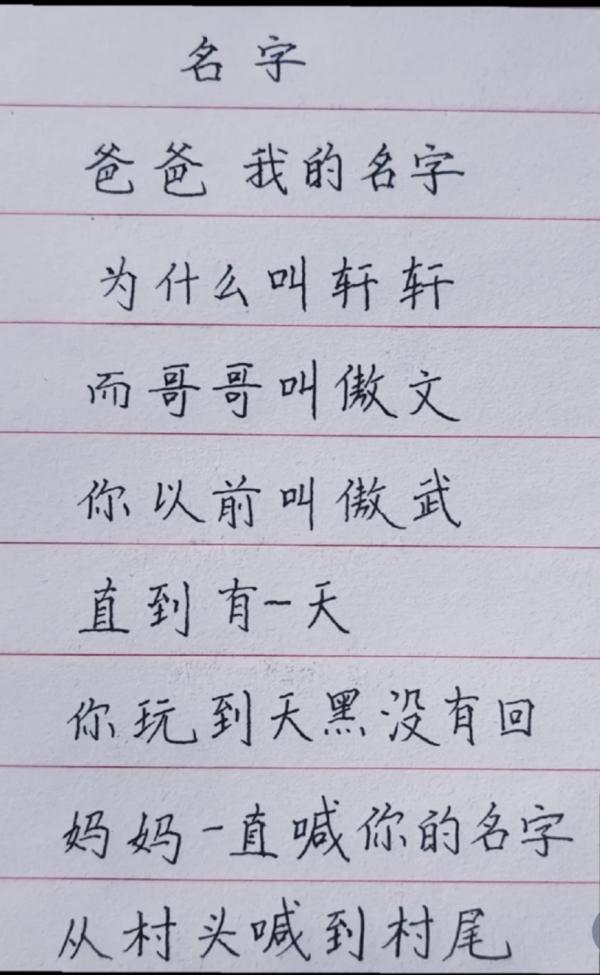 名字
爸爸 我的名字
为什么叫轩轩
而哥哥叫傲文
你以前叫傲武
直到有一天
你玩到天黑没有回
妈妈一直喊你的名字
从村头喊到村尾